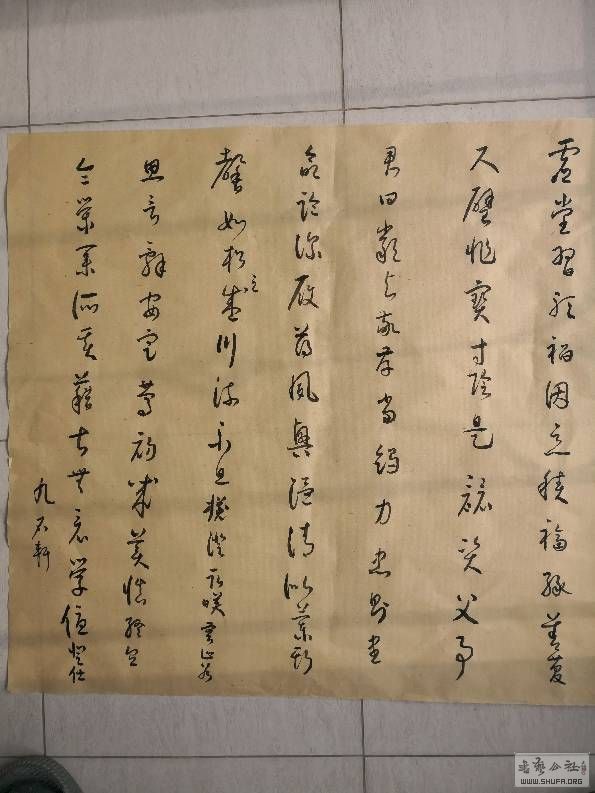 虛堂習聽禍因惡積福緣善慶
尺璧非寶寸陰是競資父事
君曰嚴與敬孝當竭力忠則盡
命臨深履薄夙興溫清似蘭斯
馨如松之盛川流不息淵澄取暎容止若
思言辭安定篤初誠美慎終宜
令榮業所基藉甚無竟學優登仕
九 軒
书艺公社
WWW.SHUFA.ORG